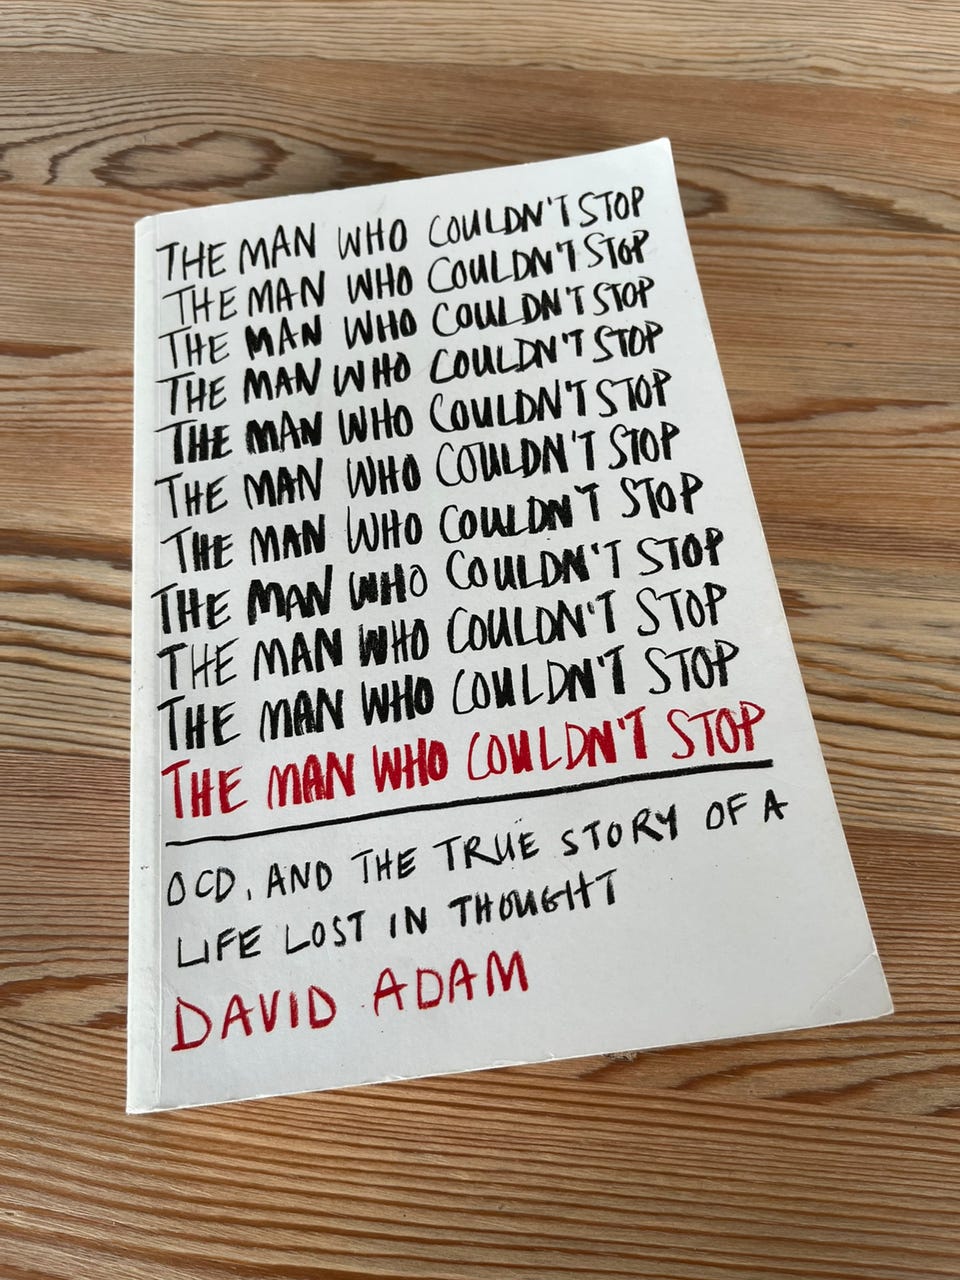 THE MAN WHO COULDN'T STOP
THE MAN WHO COULDN'T STOP
THE MAN WHO COULDN'T STOP
THE MAN WHO COULDN'T STOP
THE MAN WHO COULDN'T STOP
THE MAN WHO COULDN'T STOP
THE MAN WHO COULDN'T STOP
THE MAN WHO COULDN'T STOP
THE MAN WHO COULDN'T STOP
THE MAN WHO COULDN'T STOP
THE MAN WHO COULDN'T STOP
OCD, AND THE TRUE STORY OF A
LIFE LOST IN THOUGHT
DAVID ADAM